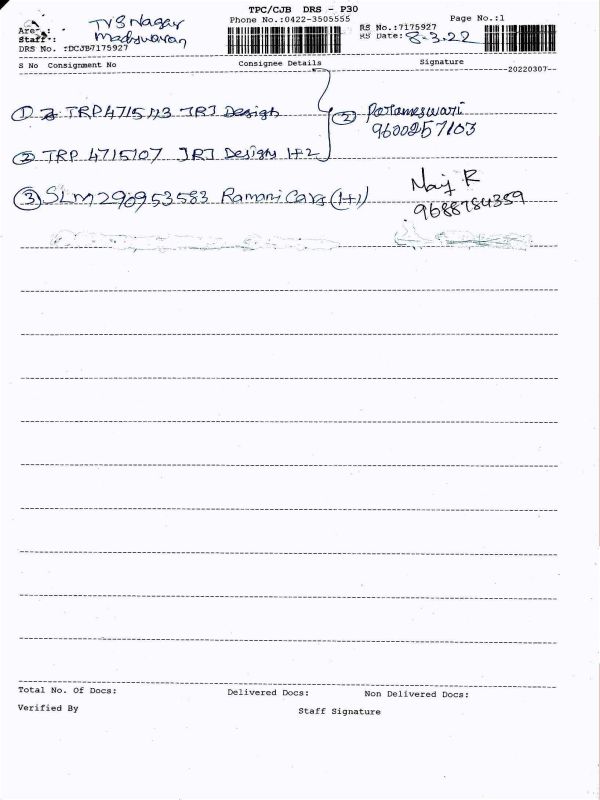 TPC/CJB DRS - P30
Phone No.:0422-3505555
Page No.:1
TVS Nagar
Madswaran
Staff :
DRS No. :DCJB7175927
RS No.:7175927
RS Date: 8-3-22
S No Consignment No Consignee Details Signature
20220307
① TRP4715113 JRJ Design
② Parameswari
9600257103
② TRP 4715107 JRJ Designs 1+2
③ SLM290953583 Ramani Cars (1+1)
R
9688784359
Total No. Of Docs: Delivered Docs: Non Delivered Docs:
Verified By Staff Signature